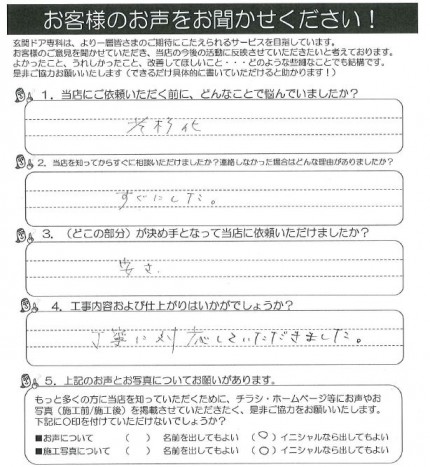 お客様のお声をお聞かせください！
玄関ドア専科は、より一層皆さまのご期待にこたえられるサービスを目指しています。
お客様のご意見を聞かせていただき、当店の今後の活動に反映させていただきたいと考えております。
よかったこと、うれしかったこと、改善してほしいこと・・・どのような些細なことでも結構です。
是非ご協力お願いいたします（できるだけ具体的に書いていただけると助かります！）
1．当店にご依頼いただく前に、どんなことで悩んでいましたか？
老朽化
2．当店を知ってからすぐに相談いただけましたか？連絡しなかった場合はどんな理由がありましたか？
すぐにした。
3．（どこの部分）が決め手となって当店に依頼いただけましたか？
安さ
4．工事内容および仕上がりはいかがでしょうか？
丁寧に対応していただきました。
5．上記のお声とお写真についてお願いがあります。
もっと多くの方に当店を知っていただくために、チラシ・ホームページ等にお声やお
写真（施工前/施工後）を掲載させていただきたく、是非ご協力をお願いいたします。
下記に〇印を付けていただけないでしょうか？
■お声について （ ） 名前を出してもよい （〇）イニシャルなら出してもよい
■施工写真について （ ） 名前を出してもよい （〇）イニシャルなら出してもよい